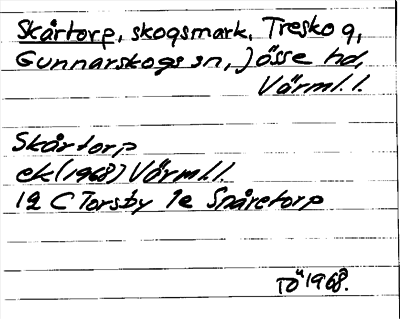 Skårtorp, skogsmark, Treskog,
Gunnarskogs sn, Jösse hd,
Värml.l.
Skårtorp
ek (1968) Värml.l.
12 C Torsby 1e Snåretorp
TÖ 1968.